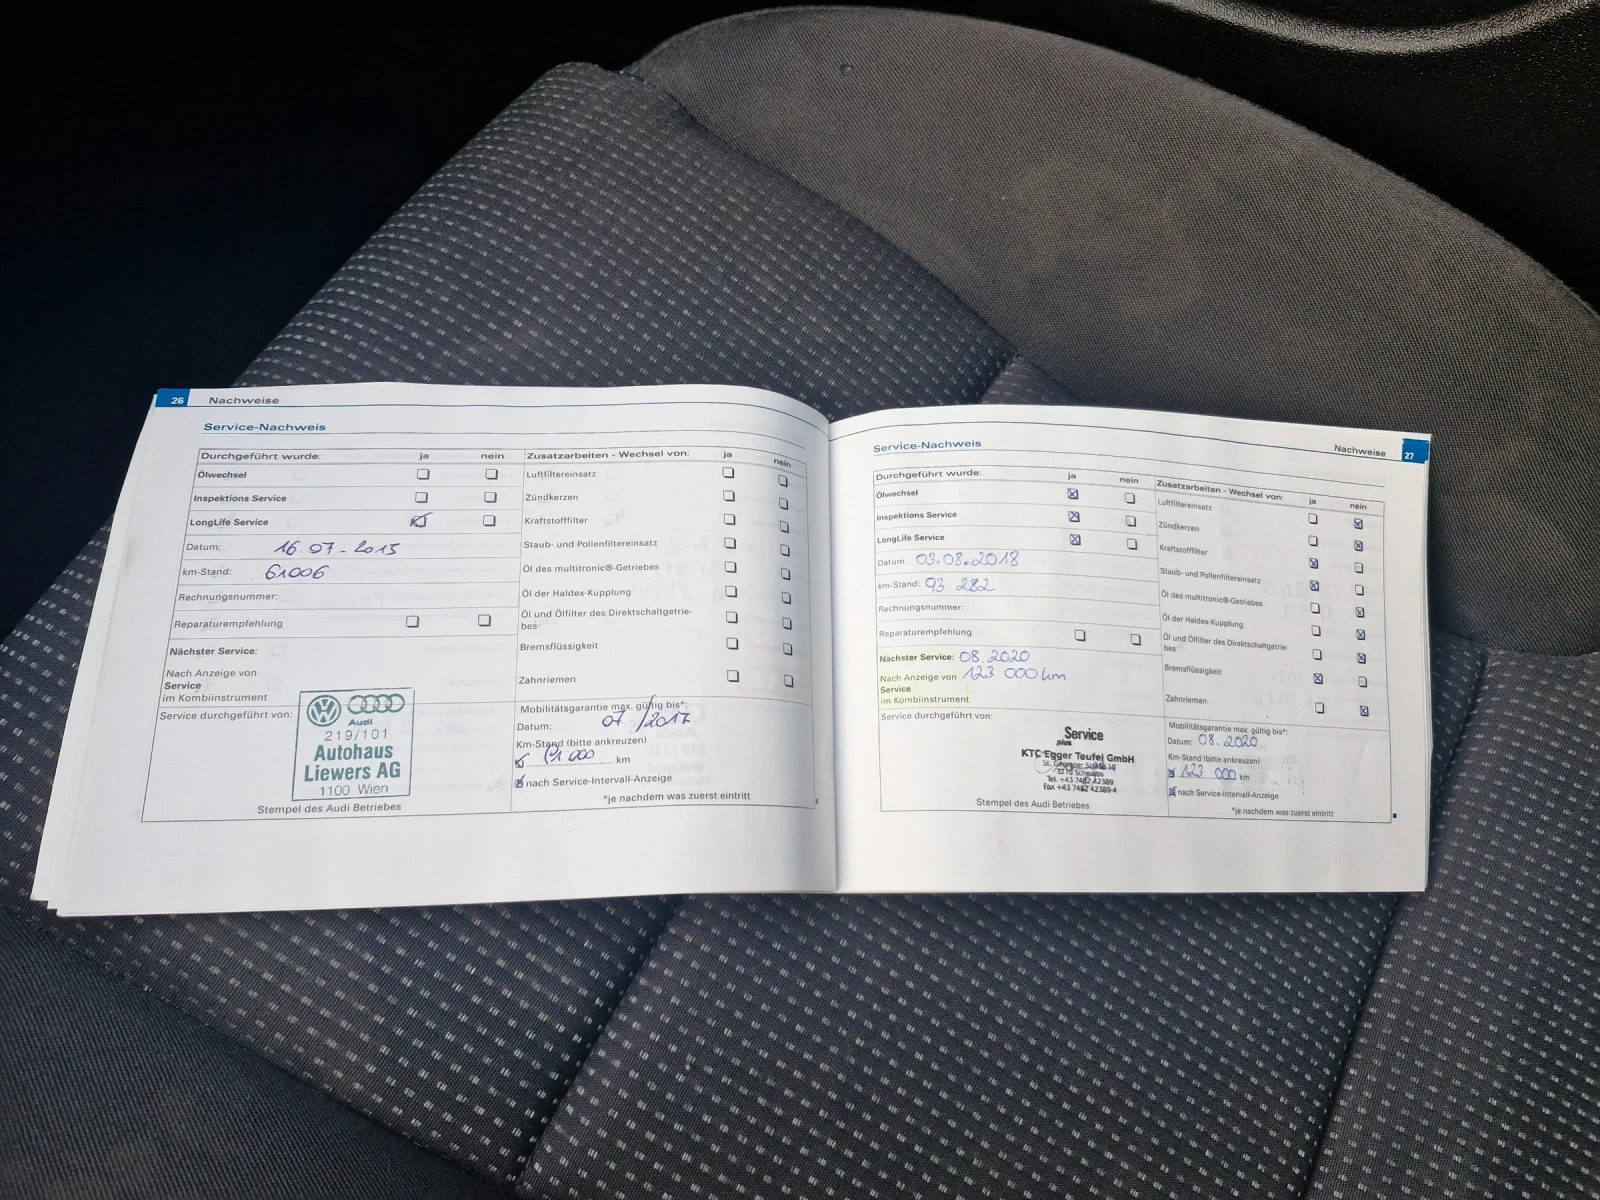 26 Nachweise
Service-Nachweis
Durchgeführt wurde: ja nein
Ölwechsel
Inspektions Service
LongLife Service
Datum: 16.07-2015
km-Stand: 61006
Rechnungsnummer:
Reparaturempfehlung
Nächster Service:
Nach Anzeige von
Service
im Kombiinstrument
Service durchgeführt von:
Audi
219/101
Autohaus
Liewers AG
1100 Wien
Stempel des Audi Betriebes
Zusatzarbeiten - Wechsel von: ja nein
Luftfiltereinsatz
Zündkerzen
Kraftstofffilter
Staub- und Pollenfiltereinsatz
Öl des multitronic®-Getriebes
Öl der Haldex-Kupplung
Öl und Ölfilter des Direktschaltgetrie-
bes
Bremsflüssigkeit
Zahnriemen
Mobilitätsgarantie max. gültig bis*:
Datum: 07/2017
Km-Stand (bitte ankreuzen)
000 km
nach Service-Intervall-Anzeige
*je nachdem was zuerst eintritt
Nachweise 27
Service-Nachweis
Durchgeführt wurde: ja nein
Ölwechsel
Inspektions Service
LongLife Service
Datum: 03.08.2018
km-Stand: 93 282
Rechnungsnummer:
Reparaturempfehlung
Nächster Service: 08.2020
Nach Anzeige von 123 000 km
Service
im Kombiinstrument
Service durchgeführt von:
Service
plus
KTC Egger Teufel GmbH
3270 Scheibbs
Tel. +43 7482 42389
Fax +43 7482 42389-4
Stempel des Audi Betriebes
Zusatzarbeiten - Wechsel von: ja nein
Luftfiltereinsatz
Zündkerzen
Kraftstofffilter
Staub- und Pollenfiltereinsatz
Öl des multitronic®-Getriebes
Öl der Haldex-Kupplung
Öl und Ölfilter des Direktschaltgetrie-
bes
Bremsflüssigkeit
Zahnriemen
Mobilitätsgarantie max. gültig bis*:
Datum: 08.2020
Km-Stand (bitte ankreuzen)
123 000 km
nach Service-Intervall-Anzeige
*je nachdem was zuerst eintritt